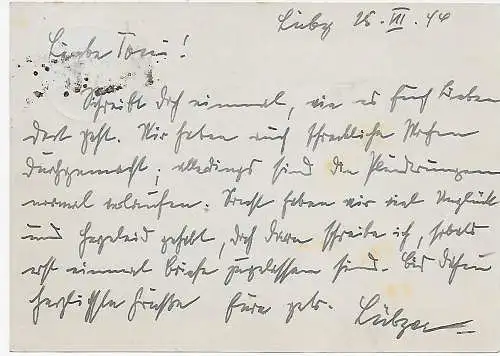 Lübz 25. VII. 44
Liebe Toni!
Schreibt doch einmal, wie es Euch Lieben
dort geht. Wir haben auch schreckliche Wochen
durchgemacht; allerdings sind die Plünderungen
normal verlaufen. Sonst haben wir viel Unglück
und Herzeleid gehabt, doch davon schreibe ich, sobald
erst einmal Briefe zugelassen sind. Bis dahin
herzliche Grüße Eure getr. Lübzer